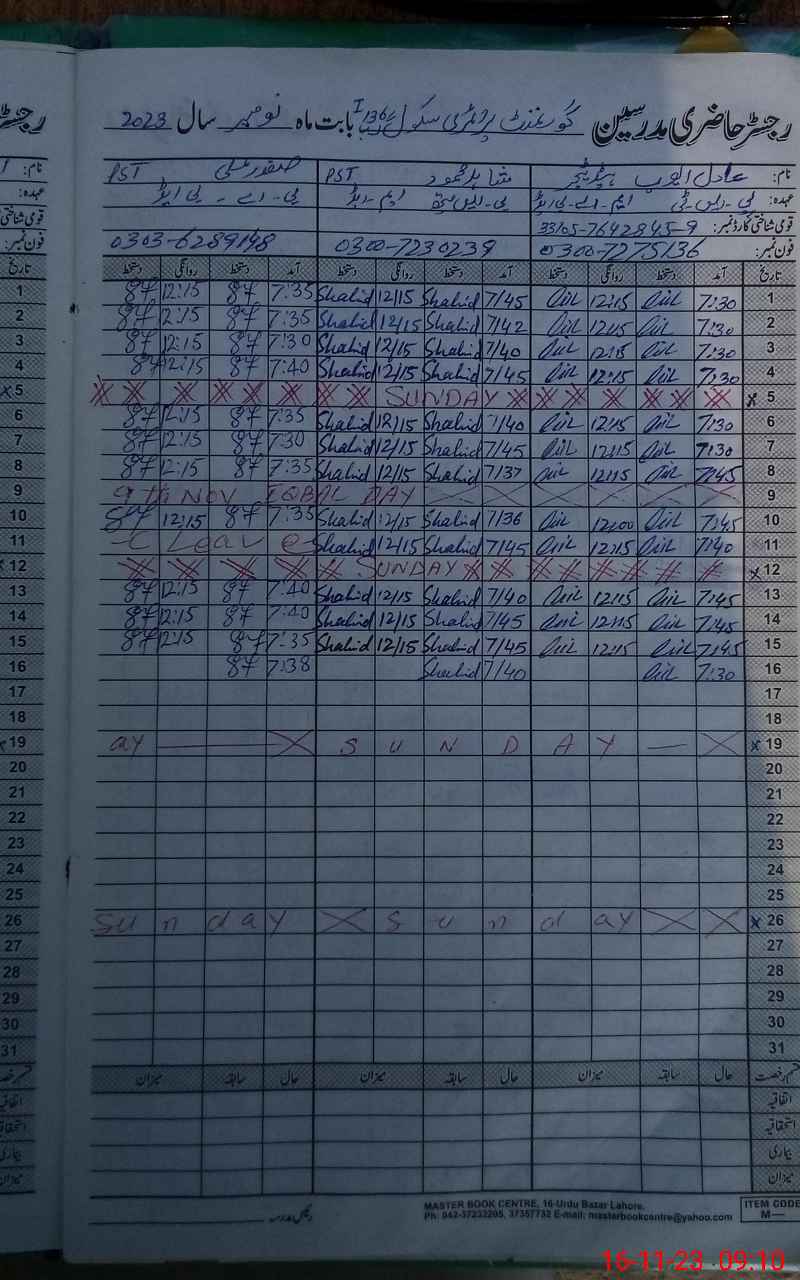 رجسٹر حاضری مدرسین گورنمنٹ پرائمری سکول 136 بابت ماہ نومبر سال 2023
نام: عادل ایوب ہیڈ ٹیچر شاہد محمود PST صفدر علی PST
عہدہ: پی۔ایس۔ٹی ایم۔اے۔بی ایڈ بی۔ایس سی ایم۔ایڈ بی۔اے۔بی ایڈ
قومی شناختی کارڈ نمبر: 33105-7642845-9
فون نمبر: 0300-7275136 0300-7230239 0303-6289148
تاریخ آمد دستخط روانگی دستخط آمد دستخط روانگی دستخط آمد دستخط روانگی دستخط تاریخ
1 7:30 12:15 7/45 Shahid 12/15 Shahid 7:35 12:15 1
2 7:30 12:15 7/42 Shahid 12/15 Shahid 7:35 12:15 2
3 7:30 12:15 7/40 Shahid 12/15 Shahid 7:30 12:15 3
4 7:30 12:15 7/45 Shahid 12/15 Shahid 7:40 12:15 4
5 SUNDAY 5
6 7:30 12:15 7/40 Shahid 12/15 Shahid 7:35 12:15 6
7 7:30 12:15 7/45 Shahid 12/15 Shahid 7:30 12:15 7
8 7:45 12:15 7/37 Shahid 12/15 Shahid 7:35 12:15 8
9 9th NOV IQBAL DAY 9
10 7:45 12:00 7/36 Shahid 12/15 Shahid 7:35 12:15 10
11 7:40 12:15 7/45 Shahid 12/15 Shahid C Leave 11
12 SUNDAY 12
13 7:45 12:15 7/40 Shahid 12/15 Shahid 7:40 12:15 13
14 7:45 12:15 7/45 Shahid 12/15 Shahid 7:40 12:15 14
15 7:45 12:15 7/45 Shahid 12/15 Shahid 7:35 12:15 15
16 7:30 7/40 Shahid 7:38 16
17 17
18 18
19 ay SUNDAY 19
20 20
21 21
22 22
23 23
24 24
25 25
26 Sunday Sunday 26
27 27
28 28
29 29
30 30
31 31
قسم رخصت حال سابقہ میزان حال سابقہ میزان حال سابقہ میزان
اتفاقیہ
استحقاقیہ
بیماری
میزان
رئیس مدرسہ
MASTER BOOK CENTRE, 16-Urdu Bazar Lahore.
Ph: 042-37232205, 37357732 E-mail: masterbookcentre@yahoo.com
ITEM CODE
M—
16-11-23 09:10